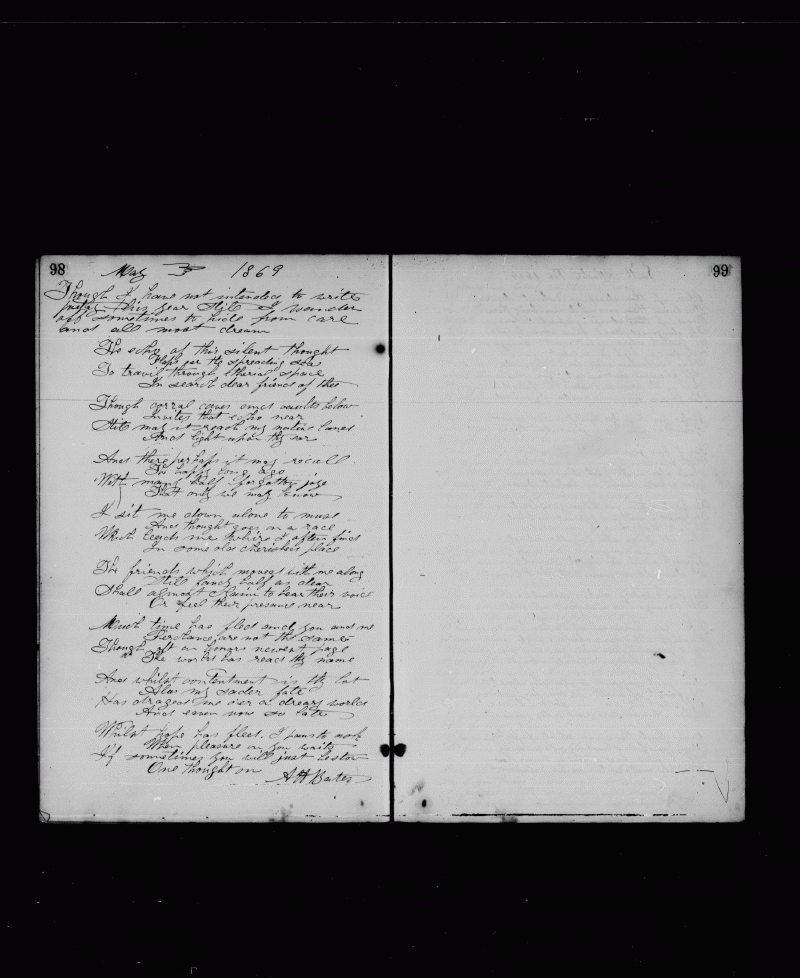 98
May 3 1869
Though I have not intended to write
this year Still I wander
off sometimes to hide from care
and all most dream
The echo of this silent thought
Flaps oer the spreading sea
To travil through etherial space
In search dear friends of thee
Though corral caves and vaults below
Invites that echo near
Still may it reach my native land
And light upon thy ear
And there perhaps it may recall
The happy long ago
With many half forgotten joys
That only we may know
I sit me down alone to muse
And thought goes on a race
Which leads me where I often find
In some old cherished place
The friends which moved with me along
Still fancy half as dear
Shall almost seem to hear their voice
Or feel their presence near
Much time has fled and you and me
Perchance are not the same
Though oft on honors newest page
The world has read thy name
And whilst contentment is thy lot
Alas my sader fate
Has draged me oer a dreary world
And even now so late
Whilst hope has fled. I pause to ask
When pleasure on you waits
If sometimes you will just bestow
One thought on
A H Bates
99